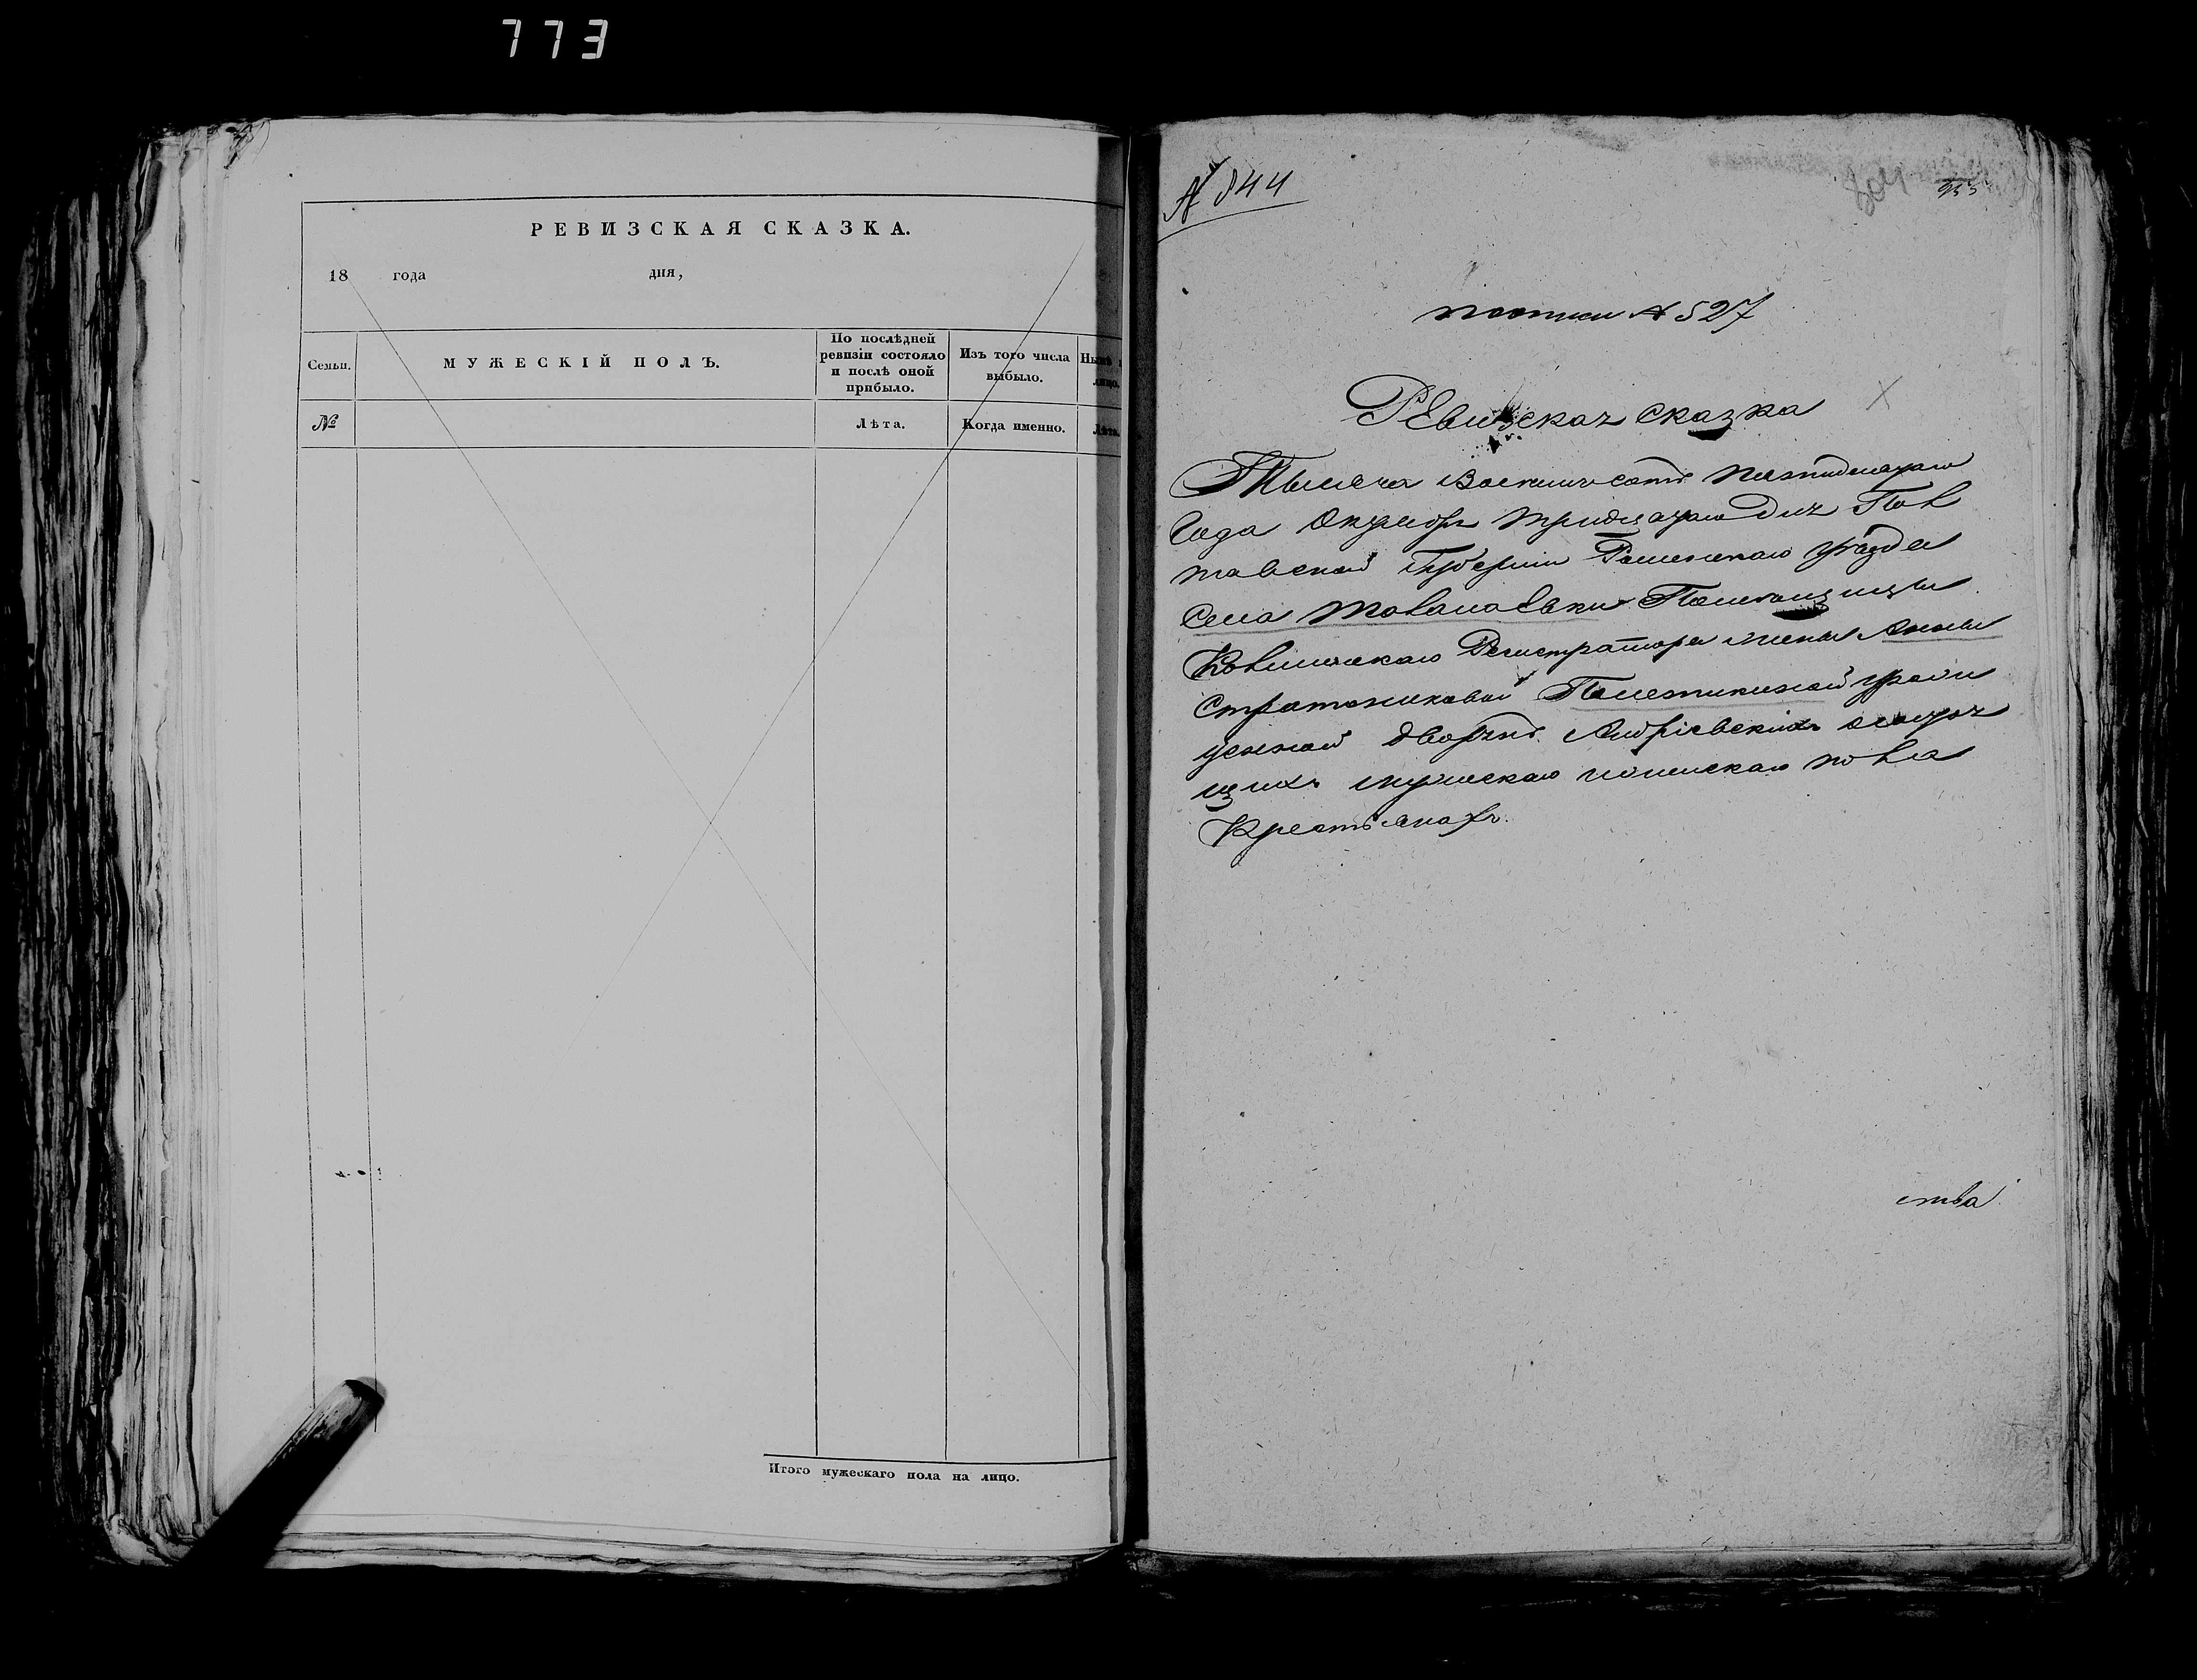 773
РЕВИЗСКАЯ СКАЗКА.
18 года дня,
Семьи.
МУЖЕСКІЙ ПОЛЪ.
По послѣдней
ревизіи состояло
и послѣ оной
прибыло.
Изъ того числа
выбыло.
№
Лѣта.
Когда именно.
Лѣта.
Итого мужескаго пола на лицо.
№ 844
955
по описи № 527
Ревизская сказка
Тысяча восемьсотъ пятидесятаго
Года Октября тридцатаго дня Пол
тавской Губерніи Роменскаго уезда
Села Толкачовки Помещицы
Колежскаго Регистратора жены Анны
Стратониковой Полетикиной
денной Андріевскихъ состоя
щихъ мужескаго и женскаго пола
Крестьянахъ.
ства